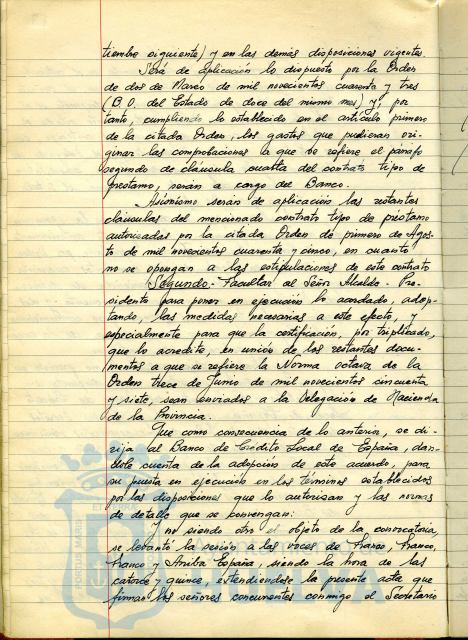 tiembre siguiente) y en las demás disposiciones vigentes.
Será de aplicación lo dispuesto por la Orden
de dos de Marzo de mil novecientos cuarenta y tres
(B. O. del Estado de doce del mismo mes) y, por
tanto, cumpliendo lo establecido en el artículo primero
de la citada Orden, los gastos que pudieran ori-
ginar las comprobaciones a que se refiere el párrafo
segundo de cláusula cuarta del contrato tipo de
préstamo, serán a cargo del Banco.
Asimismo serán de aplicación las restantes
cláusulas del mencionado contrato tipo de préstamo
autorizadas por la citada Orden de primero de Agos-
to de mil novecientos cuarenta y cinco, en cuanto
no se opongan a las estipulaciones de este contrato
Segundo.- Facultar al Señor Alcalde-Pre-
sidente para poner en ejecución lo acordado, adop-
tando, las medidas necesarias a este efecto, y
especialmente para que la certificación, por triplicado,
que lo acredite, en unión de los restantes docu-
mentos a que se refiere la Norma octava de la
Orden trece de Junio de mil novecientos cincuenta
y siete, sean enviados a la Delegación de Hacienda
de la Provincia.
Que como consecuencia de lo anterior, se di-
rija al Banco de Crédito Local de España, dan-
dole cuenta de la adopción de este acuerdo, para
su puesta en ejecución en los términos establecidos
por las disposiciones que lo autorizan y las normas
de detalle que se convengan:
Y no siendo otro el objeto de la convocatoria,
se levantó la sesión a las voces de Franco, Franco,
Franco y Arriba España, siendo la hora de las
catorce y quince, extendiéndose la presente acta que
firman los señores concurrentes conmigo el Secretario